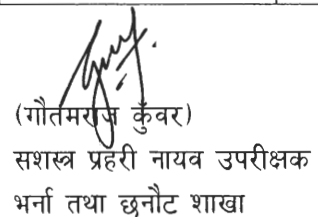 (गौतमराज कुँवर)
सशस्त्र प्रहरी नायव उपरीक्षक
भर्ना तथा छनौट शाखा